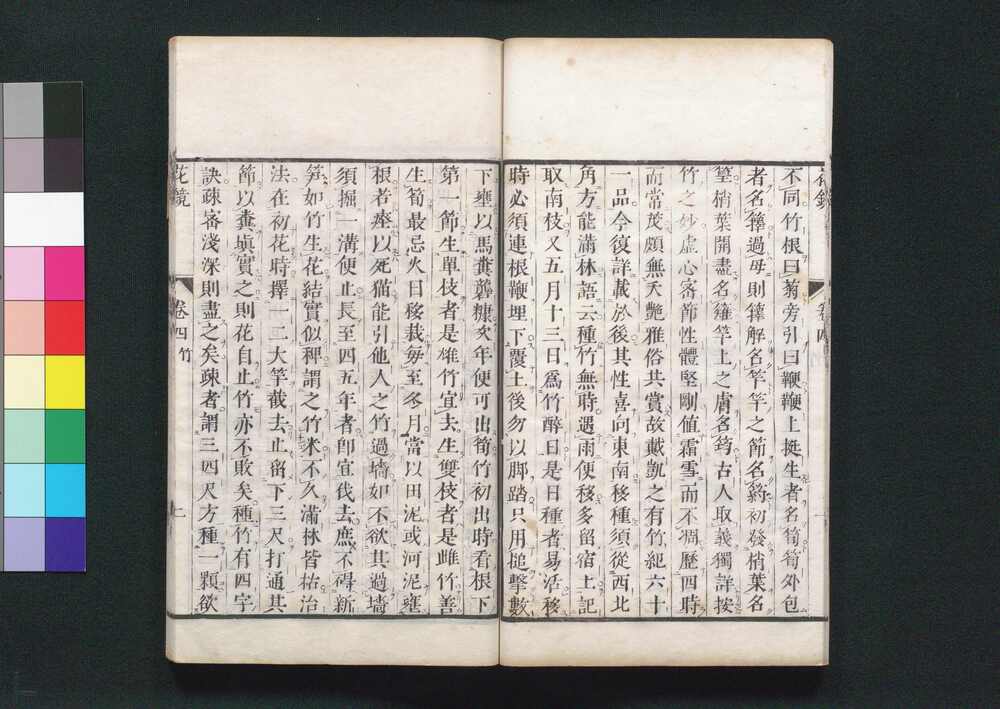 不同竹根曰菊旁引曰鞭鞭上挺生者名筍筍外包
者名籜過母則籜解名竿竿之節名䈟初發梢葉名
篁梢葉開盡名䉶竿上之膚名筠古人取義獨詳按
竹之妙虛心密節性體堅剛值霜雪而不凋歷四時
而常茂頗無夭艷雅俗共賞故戴凱之有竹紀六十
一品今復詳載於後其性喜向東南移種須從西北
角方能滿林語云種竹無時遇雨便移多留宿土記
取南枝又五月十三日爲竹醉日是日種者易活移
時必須連根鞭埋下覆土後勿以脚踏只用搥擊數
下壅以馬糞礱糠次年便可出筍竹初出時看根下
第一節生單枝者是雄竹宜去生雙枝者是雌竹善
生筍最忌火日移栽每至冬月當以田泥或河泥壅
根若瘞以死猫能引他人之竹過墻如不欲其過墻
須掘一溝便止長至四五年者卽宜伐去庶不碍新
笋如竹生花結實似稗謂之竹米不久滿林皆枯治
法在初花時擇一二大竿截去止畱下三尺打通其
節以糞塡實之則花自止竹亦不敗矣種竹有四字
訣疎密淺深則盡之矣疎者謂三四尺方種一顆欲
花鏡
卷四 竹
一